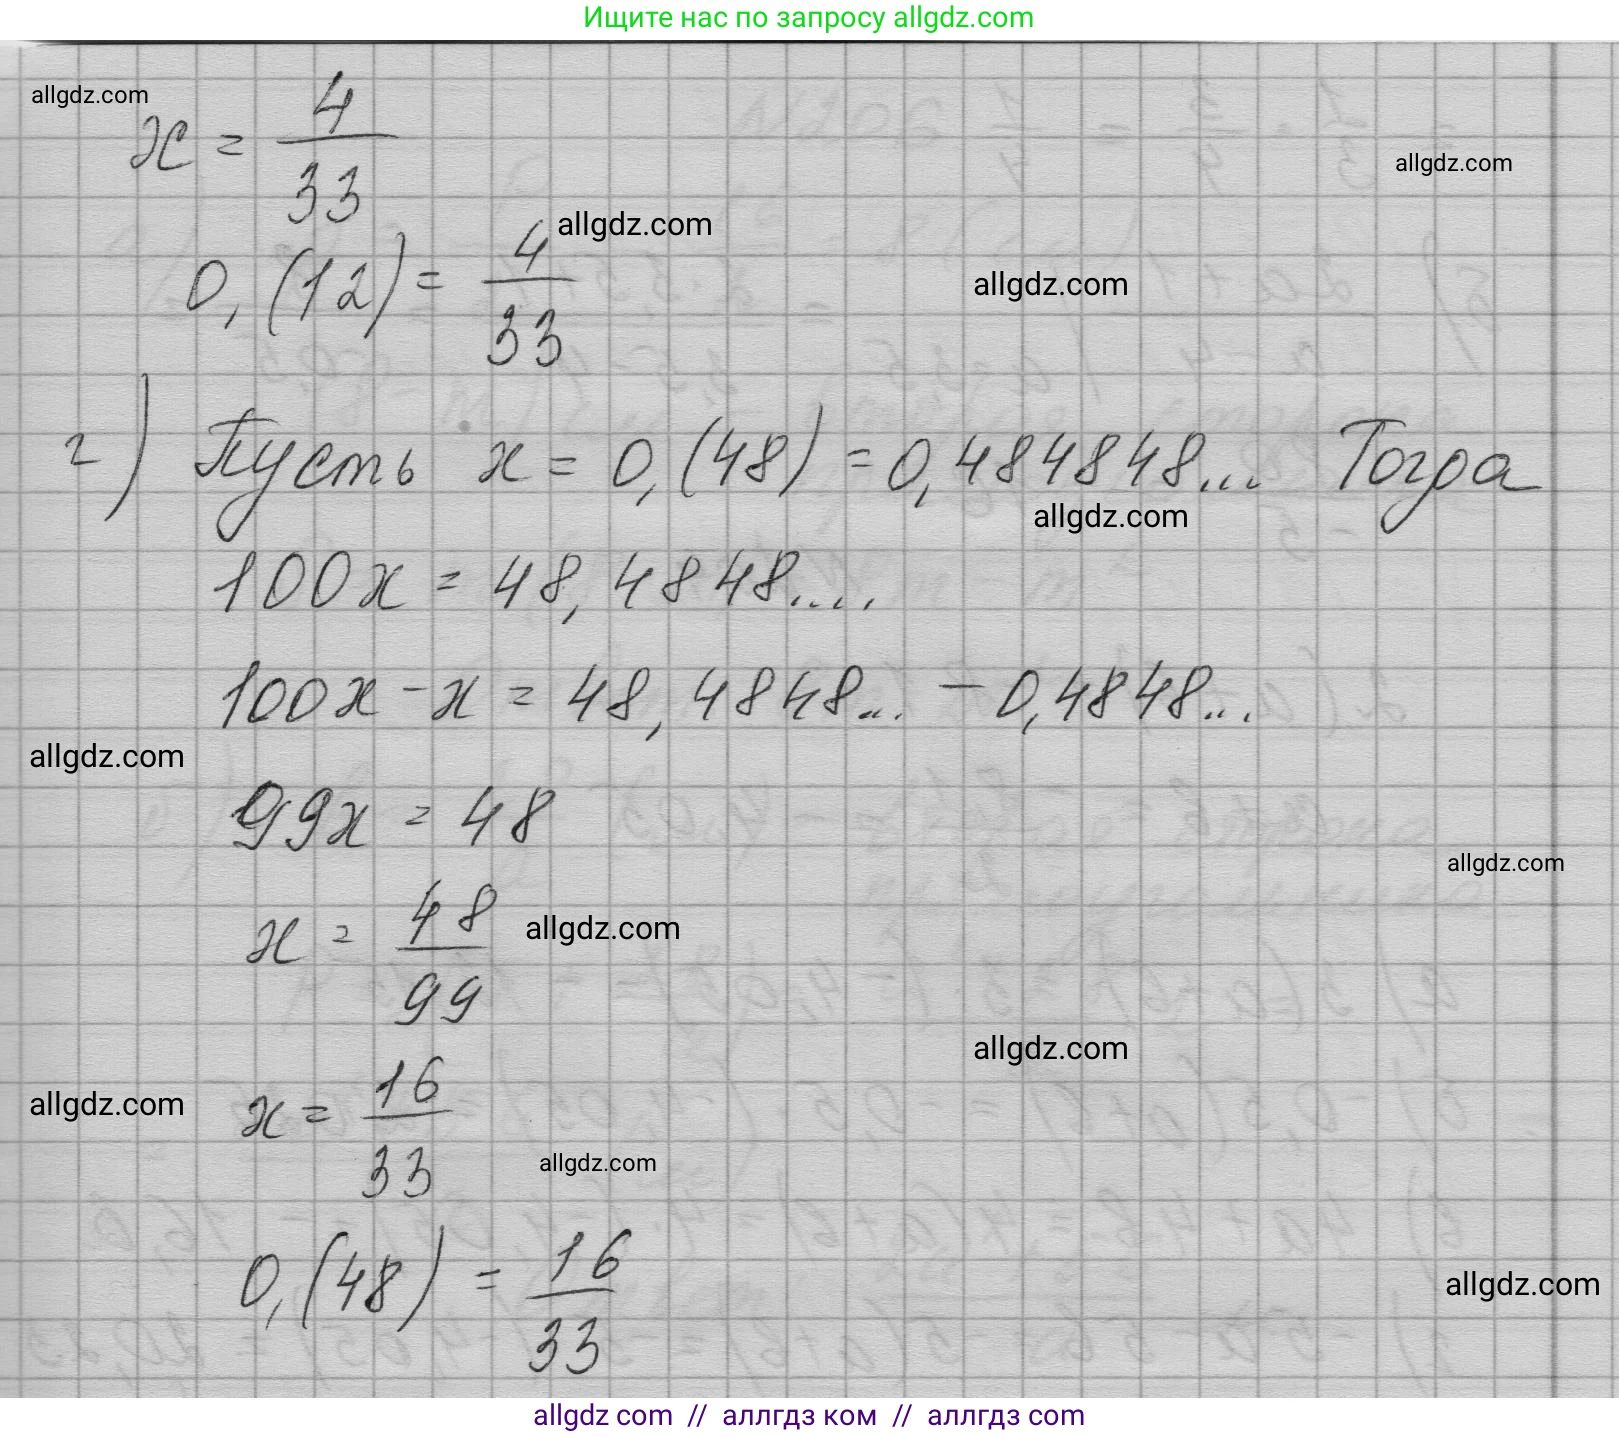 Ищите нас по запросу allgdz.com
allgdz.com
x = 4/33
allgdz.com
allgdz.com
0,(12) = 4/33
allgdz.com
г) Пусть x = 0,(48) = 0,484848... Тогда
allgdz.com
100x = 48,4848....
100x - x = 48,4848... - 0,4848...
allgdz.com
99x = 48
allgdz.com
x = 48/99
allgdz.com
allgdz.com
allgdz.com
x = 16/33
allgdz.com
0,(48) = 16/33
allgdz.com
allgdz com // аллгдз ком // аллгдз com